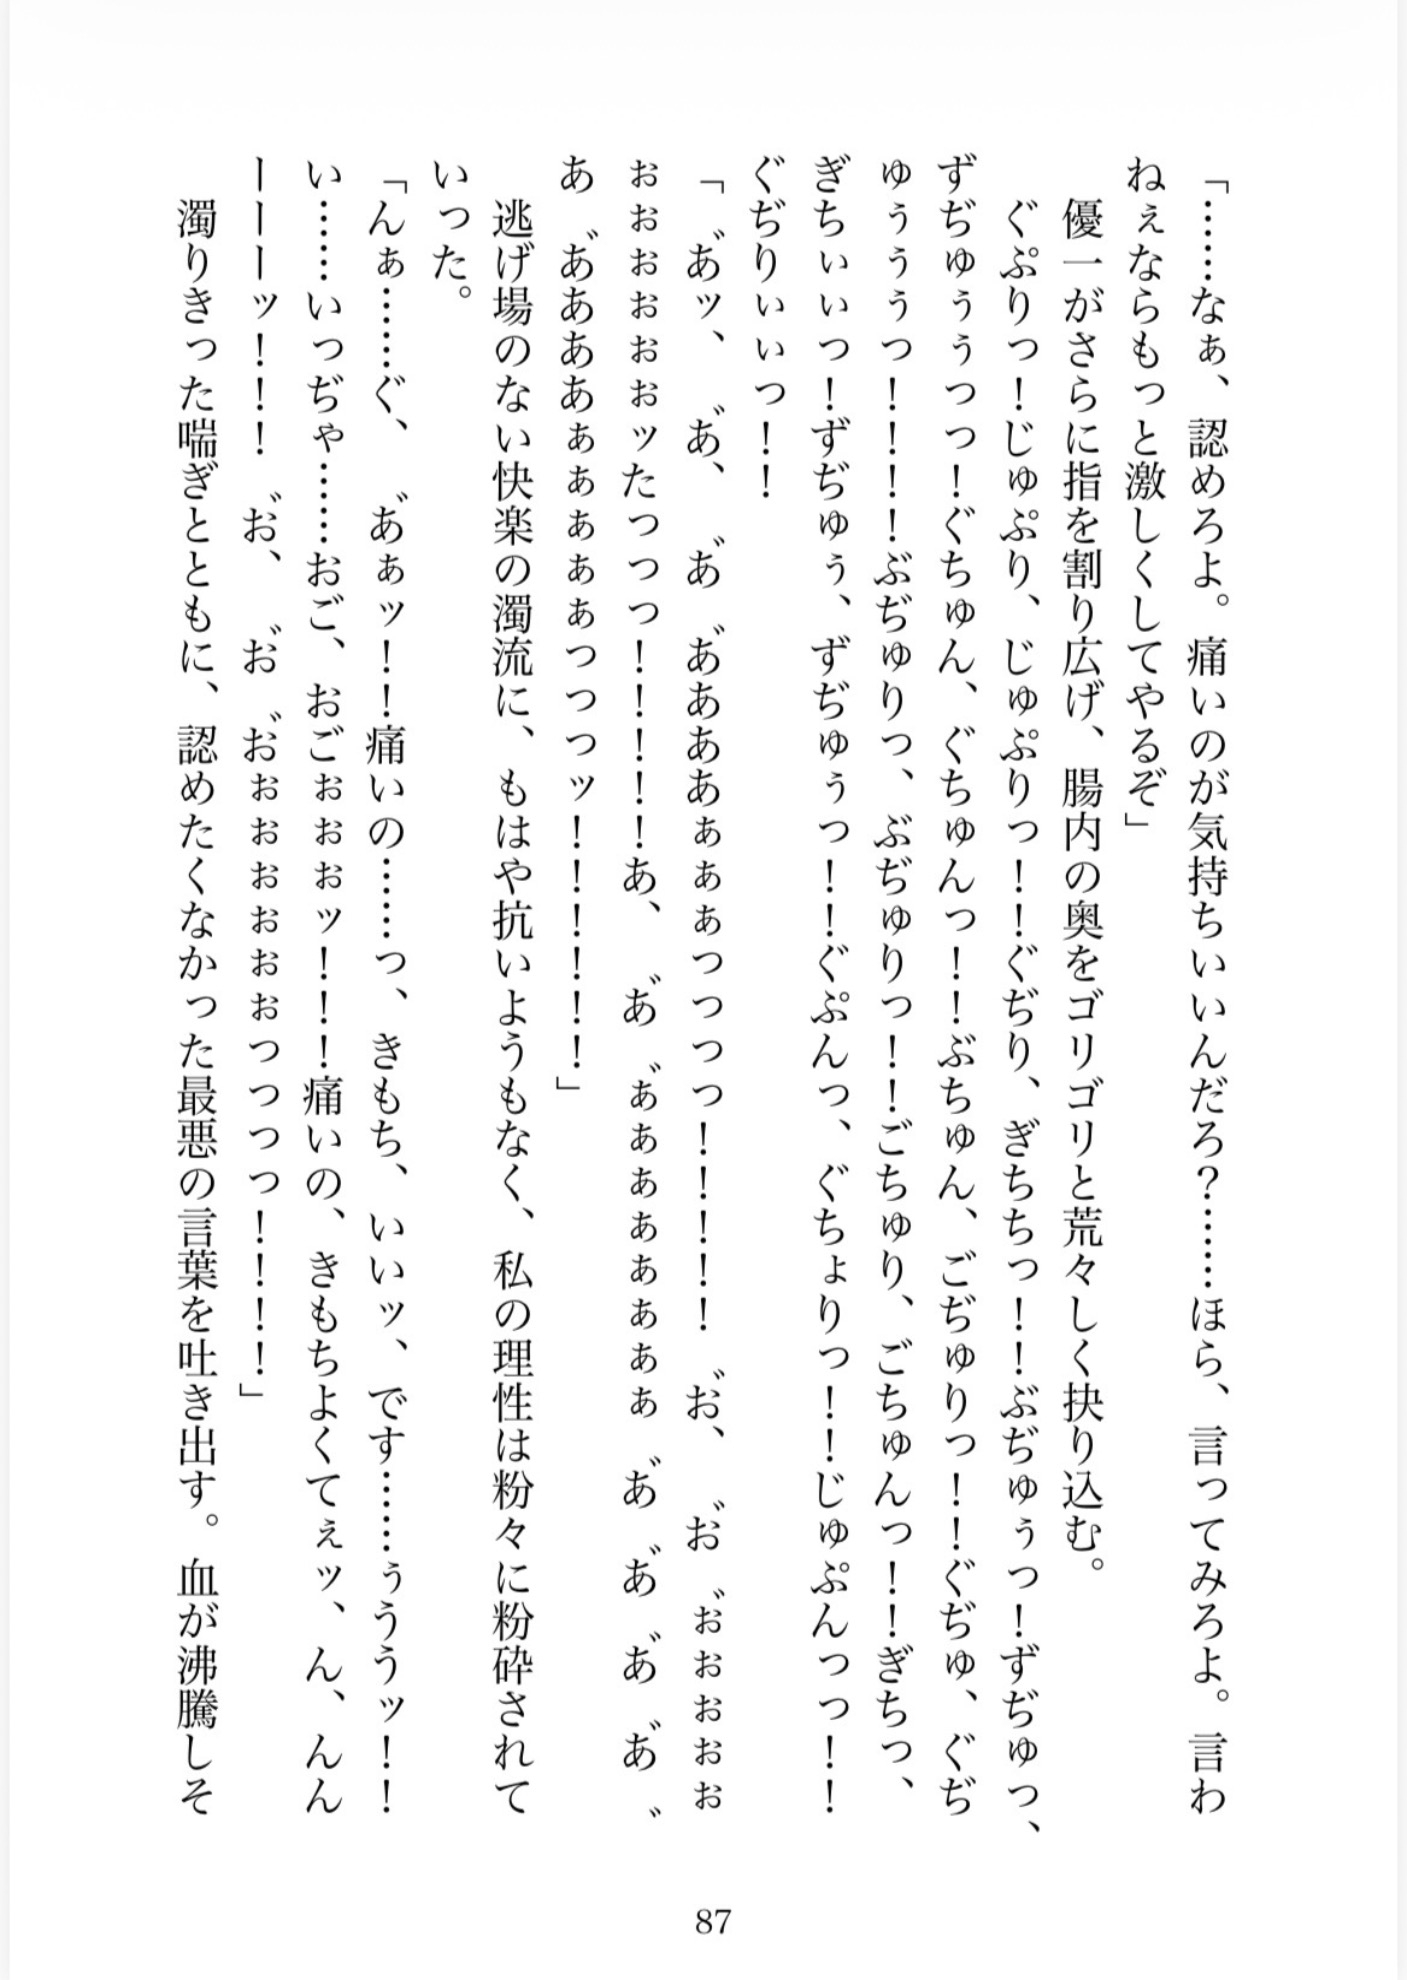 「……なぁ、認めろよ。痛いのが気持ちいいんだろ？……ほら、言ってみろよ。言わ
ねぇならもっと激しくしてやるぞ」
優一がさらに指を割り広げ、腸内の奥をゴリゴリと荒々しく抉り込む。
ぐぷりっ！じゅぷり、じゅぷりっ！！ぐぢり、ぎちちっ！！ぶぢゅぅっ！ずぢゅっ、
ずぢゅぅぅっっ！ぐちゅん、ぐちゅんっ！！ぶちゅん、ごぢゅりっ！！ぐぢゅ、ぐぢ
ゅぅぅぅっ！！！！ぶぢゅりっ、ぶぢゅりっ！！ごちゅり、ごちゅんっ！！ぎちっ、
ぎちぃぃっ！ずぢゅぅ、ずぢゅぅっ！！ぐぷんっ、ぐちょりっ！！じゅぷんっっ！！
ぐぢりぃぃっ！！
「゛あッ、゛あ、゛あ゛ああああぁぁぁっっっっ！！！！！゛お、゛お゛ぉぉぉぉぉ
ぉぉぉぉぉぉッたっっっ！！！！！あ、゛あ゛ぁぁぁぁぁぁぁぁ゛あ゛あ゛あ゛あ゛
あ゛ああああぁぁぁぁぁっっっッ！！！！！！」
逃げ場のない快楽の濁流に、もはや抗いようもなく、私の理性は粉々に粉砕されて
いった。
「んぁ……ぐ、゛あぁッ！！痛いの……っ、きもち、いいッ、です……ぅううッ！！
い……いっぢゃ……おご、おごぉぉぉッ！！！痛いの、きもちよくてぇッ、ん、んん
ーーーッ！！！゛お、゛お゛おぉぉぉぉぉぉっっっっ！！！！」
濁りきった喘ぎとともに、認めたくなかった最悪の言葉を吐き出す。血が沸騰しそ
87